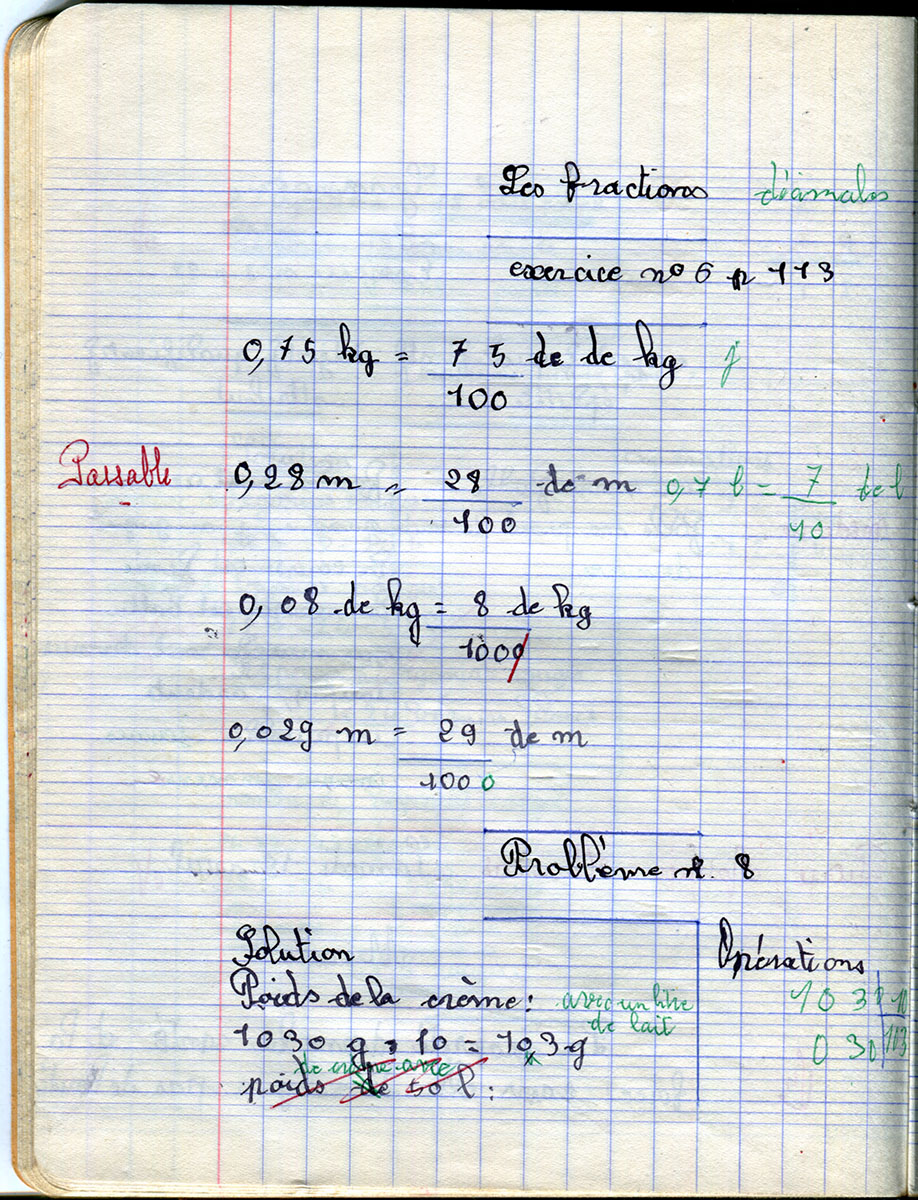 Les fractions décimales
exercice nº 6 p 113
0,75 kg = 75/100 de de kg
Passable
0,28 m = 28/100 de m 0,7 l = 7/10 de l
0,08 de kg = 8/1000 de kg
0,029 m = 29/1000 de m
Problème n. 8
Solution
Opérations
Poids de la crème : avec un litre
de lait
1030 g : 10 = 10,3 g
1030 10
030 103
de crème avec
poids de 50 l :